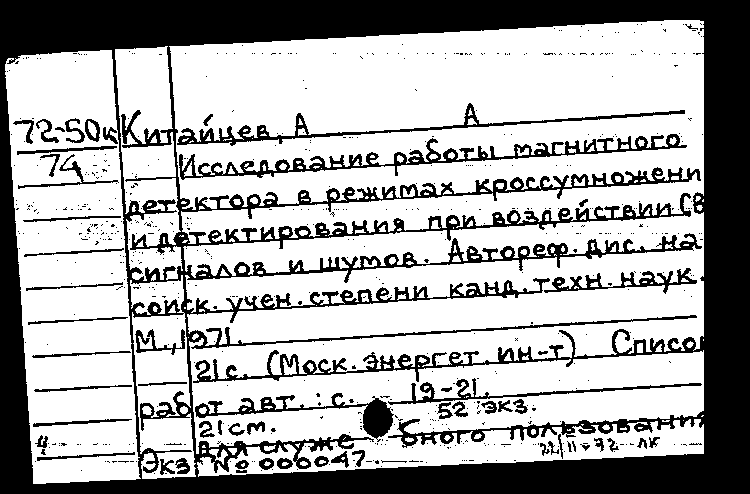 72-50к Китайцев, А А
74 Исследование работы магнитного
детектора в режимах кроссумножени
и детектирования при воздействии СВ
сигналов и шумов. Автореф. дис. на
соиск. учен. степени канд. техн. наук.
М., 1971.
21 с. (Моск. энергет. ин-т). Списо
работ авт.: с. 19-21.
21 см. 52 экз.
Для служебного пользования
Экз № 000047.